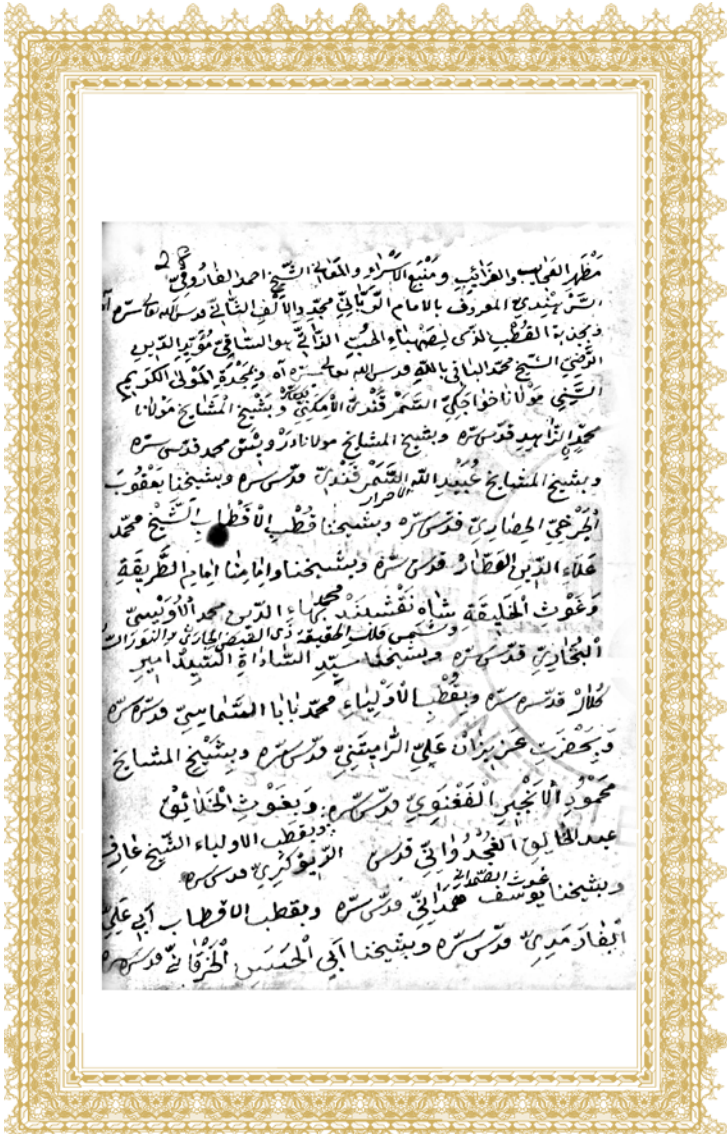 مَظْهَرِ العَجَائِب والغَرَائِبِ وَمَنْبَعِ الْاَسْرَار والمَعَانِى الشَّيْخ احمد الفَارُوقِىّ
السَّرْهِنْدِىّ المعروف بالامام الرَّبَّانِىّ مجدّد الْاَلْفِ الثَّانِىّ قدس الله تعالى سرّه
وبجذبة القُطْبِ بهو السَّاقِىّ مُؤَيِّد الدِّين
الرَّضِىّ الشّيخ محمّد الباقى بالله قدس الله تعالى سره المَوْلَى الكَرِيم
مَوْلَانَا خواجَكِى السَّمَرْقَنْدِىّ الْاَمْكَنَكِىّ وبِشَيْخِ المَشَايخ مَوْلَانا
محمّد الزَّاهِد قدّس سرّه وبشيخ المشايخ مولانا دَرْوِيش محمد قدّس سرّه
وبشيخ المشايخ عُبَيْدِ اللّٰه الاحرار السَّمَرْقَنْدِىّ قدّس سرّه وبشيخنا يَعْقُوبَ
الْجَرْخِىّ الحِصَارِىّ قدّس سرّه وبشيخنا قُطْبِ الْاَقْطَابِ الشَّيْخ محمّد
عَلَاءِ الدِّين العَطَّار قدّس سرّه وبشيخنا وَاِمَامِنَا اِمَامِ الطَّرِيقَةِ
وَغَوْثِ الْخَلِيقَةِ شاه نَقْشِبَنْد محمد بَهَاءِ الدِّين محمد الْاُوَيْسِىّ
وشمس فلك الحقيقة ذى الفيض الجارى والنور
الْبُخَارِىّ قدّس سرّه وبشيخنا سَيِّدِ السَّادَاةِ السَّيِّد امير
كُلَالْ قدّس سرّه وبقُطْبِ الْاَوْلِيَاءِ محمّد بَابَا السَّمَاسِىّ قدّس سرّه
وَبِحَضْرَتِ عَزِيزَانْ عَلِىّ الرَّامِيتَنِىّ قدّس سرّه وبِشَيْخِ المشايخ
مَحْمُود الْاَنْجِيرِ الْفَغْنَوِىّ قدّس سرّه وَبِقَطْبِ الاولياء الشّيخ عَارِف
الرّيوْكَرِىّ قدّس سرّه وَبِغَوْثِ الْخَلَائِقْ
عبد الخَالِقِ الغُجْدُوَانِىّ قدّس
وبشيخنا يوسف هَمَدَانِىّ غوث الصّمدانى قدّس سرّه وبقطب الاقطاب اَبِى عَلِىّ
الفَارْمَدِىّ قدّس سرّه وبشيخنا اَبِى الْحَسَنِ الْخَرْقَانِىّ قدّس سرّه